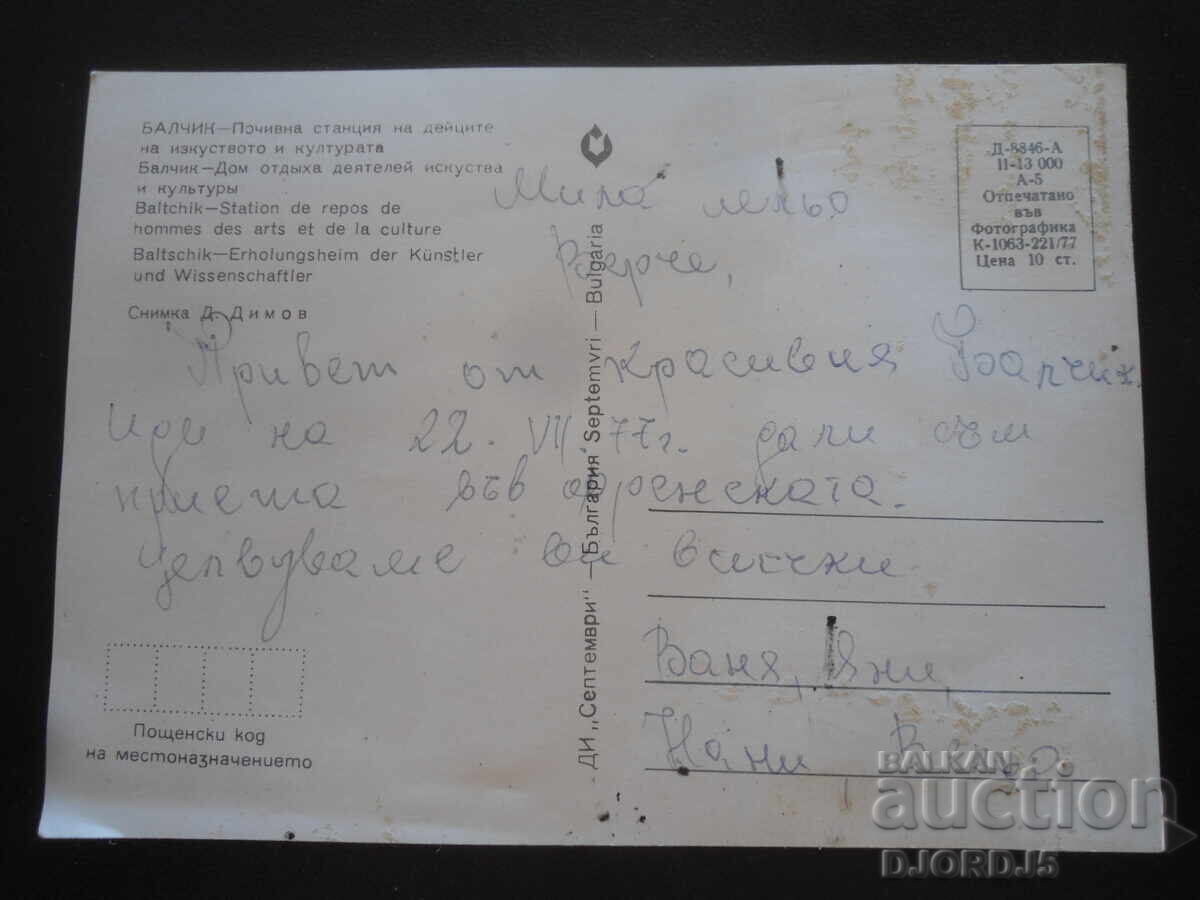 БАЛЧИК—Почивна станция на дейците
на изкуството и културата
Балчик—Дом отдыха деятелей искуства
и культуры
Baltchik—Station de repos de
hommes des arts et de la culture
Baltschik—Erholungsheim der Künstler
und Wissenschaftler
Снимка Д. Димов
Д-8846-А
11-13 000
А-5
Отпечатано
във
Фотографика
К-1063-221/77
Цена 10 ст.
Мила лельо
Верче,
Привет от красивия Балчик.
Иди на 22. VII. 77г. дали съм
приета във френската.
Целуваме ви всички
Ваня, Яни,
Нани
ДИ „Септември" — България Septemvri — Bulgaria
Пощенски код
на местоназначението
BALKAN
auction
DJORDJ5